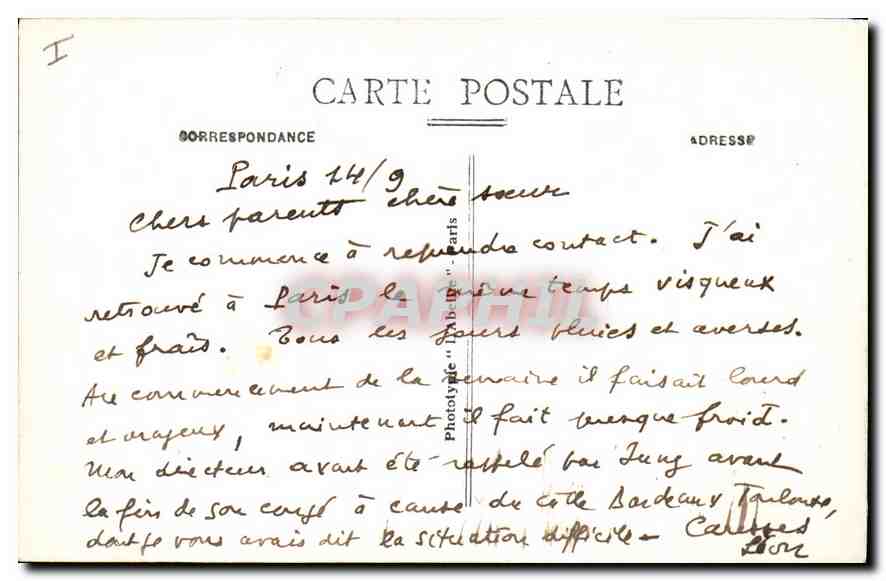 I
CARTE POSTALE
CORRESPONDANCE
ADRESSE
Paris 14/9
Chers parents chère sœur
Je commence à reprendre contact. J'ai
retrouvé à Paris le même temps visqueux
et frais. Tous les jours pluies et averses.
Au commencement de la semaine il faisait lourd
et orageux, maintenant il fait presque froid.
Mon directeur avait été rappelé par Jung avant
la fin de son congé à cause du câble Bordeaux Toulouse,
dont je vous avais dit la situation difficile - Caresses
Léon
Phototypie "L'Abeille" - Paris
CPARHII